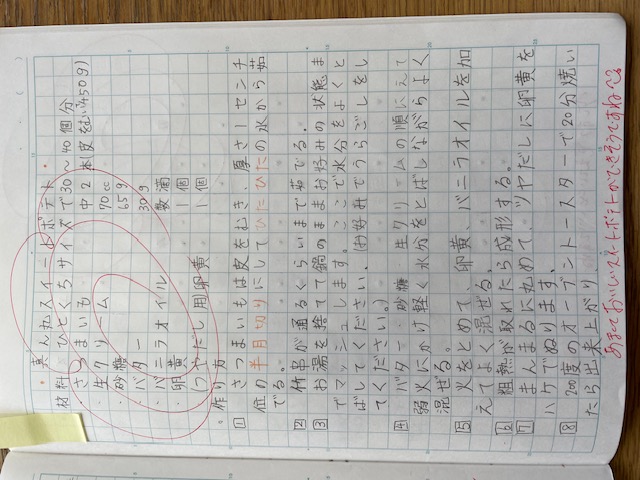 真ん丸スイートポテト
材料 ひとくちサイズで30〜40個分
・さつまいも 中2本(皮をむいて450g)
・生クリーム 70cc
・砂糖 65g
・バター 30g
・バニラオイル 数滴
・卵黄 1個
(つやだし用卵黄 1個
・作り方
1 さつまいもは皮をむき、厚さ1センチ
位の半月切りにしてひたひたの水から茹
でる。
2 竹串が通るくらいまで茹でる。
3 お湯を捨てて鍋のままお好みの状態ま
でマッシュします。ここで水分をよくと
ばしてください。(お好みでうらごしをし
てください。)
4 バター、砂糖、生クリームの順に入れて
弱火にかけ軽く水分をとばしながらよく
混ぜる。
5 火をとめて、卵黄、バニラオイルを加
えてよく混ぜる。
6 粗熱が取れたら成形する。
7 まんまるに丸めて、ツヤだしに卵黄を
ハケでぬります。
8 200度のオーブントースターで20分焼い
たら出来上がり。
あまくておいしいスイートポテトができそうですね